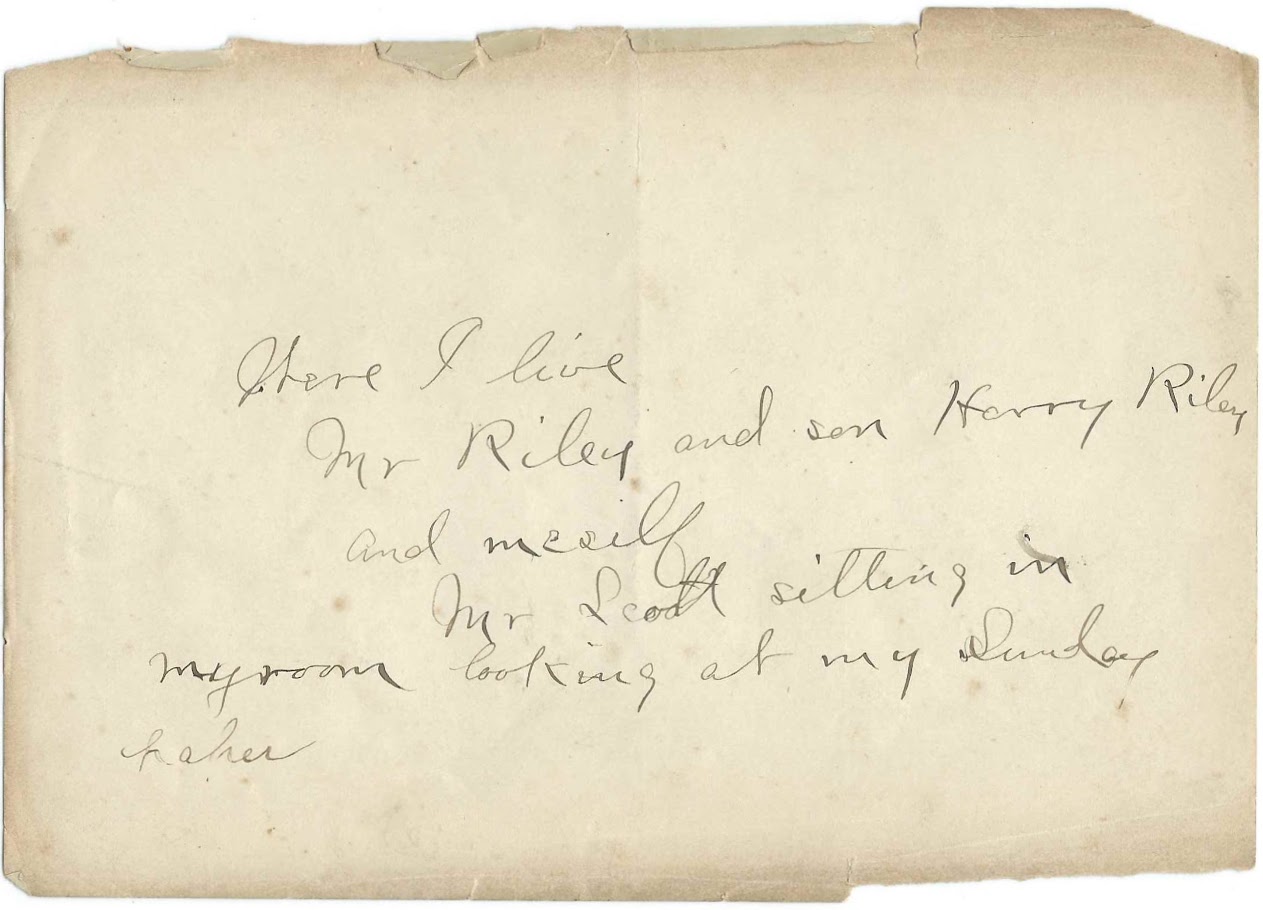 Where I live
Mr Riley and son Harry Riley
and meself
Mr Scott sitting in
my room looking at my Sunday
paper